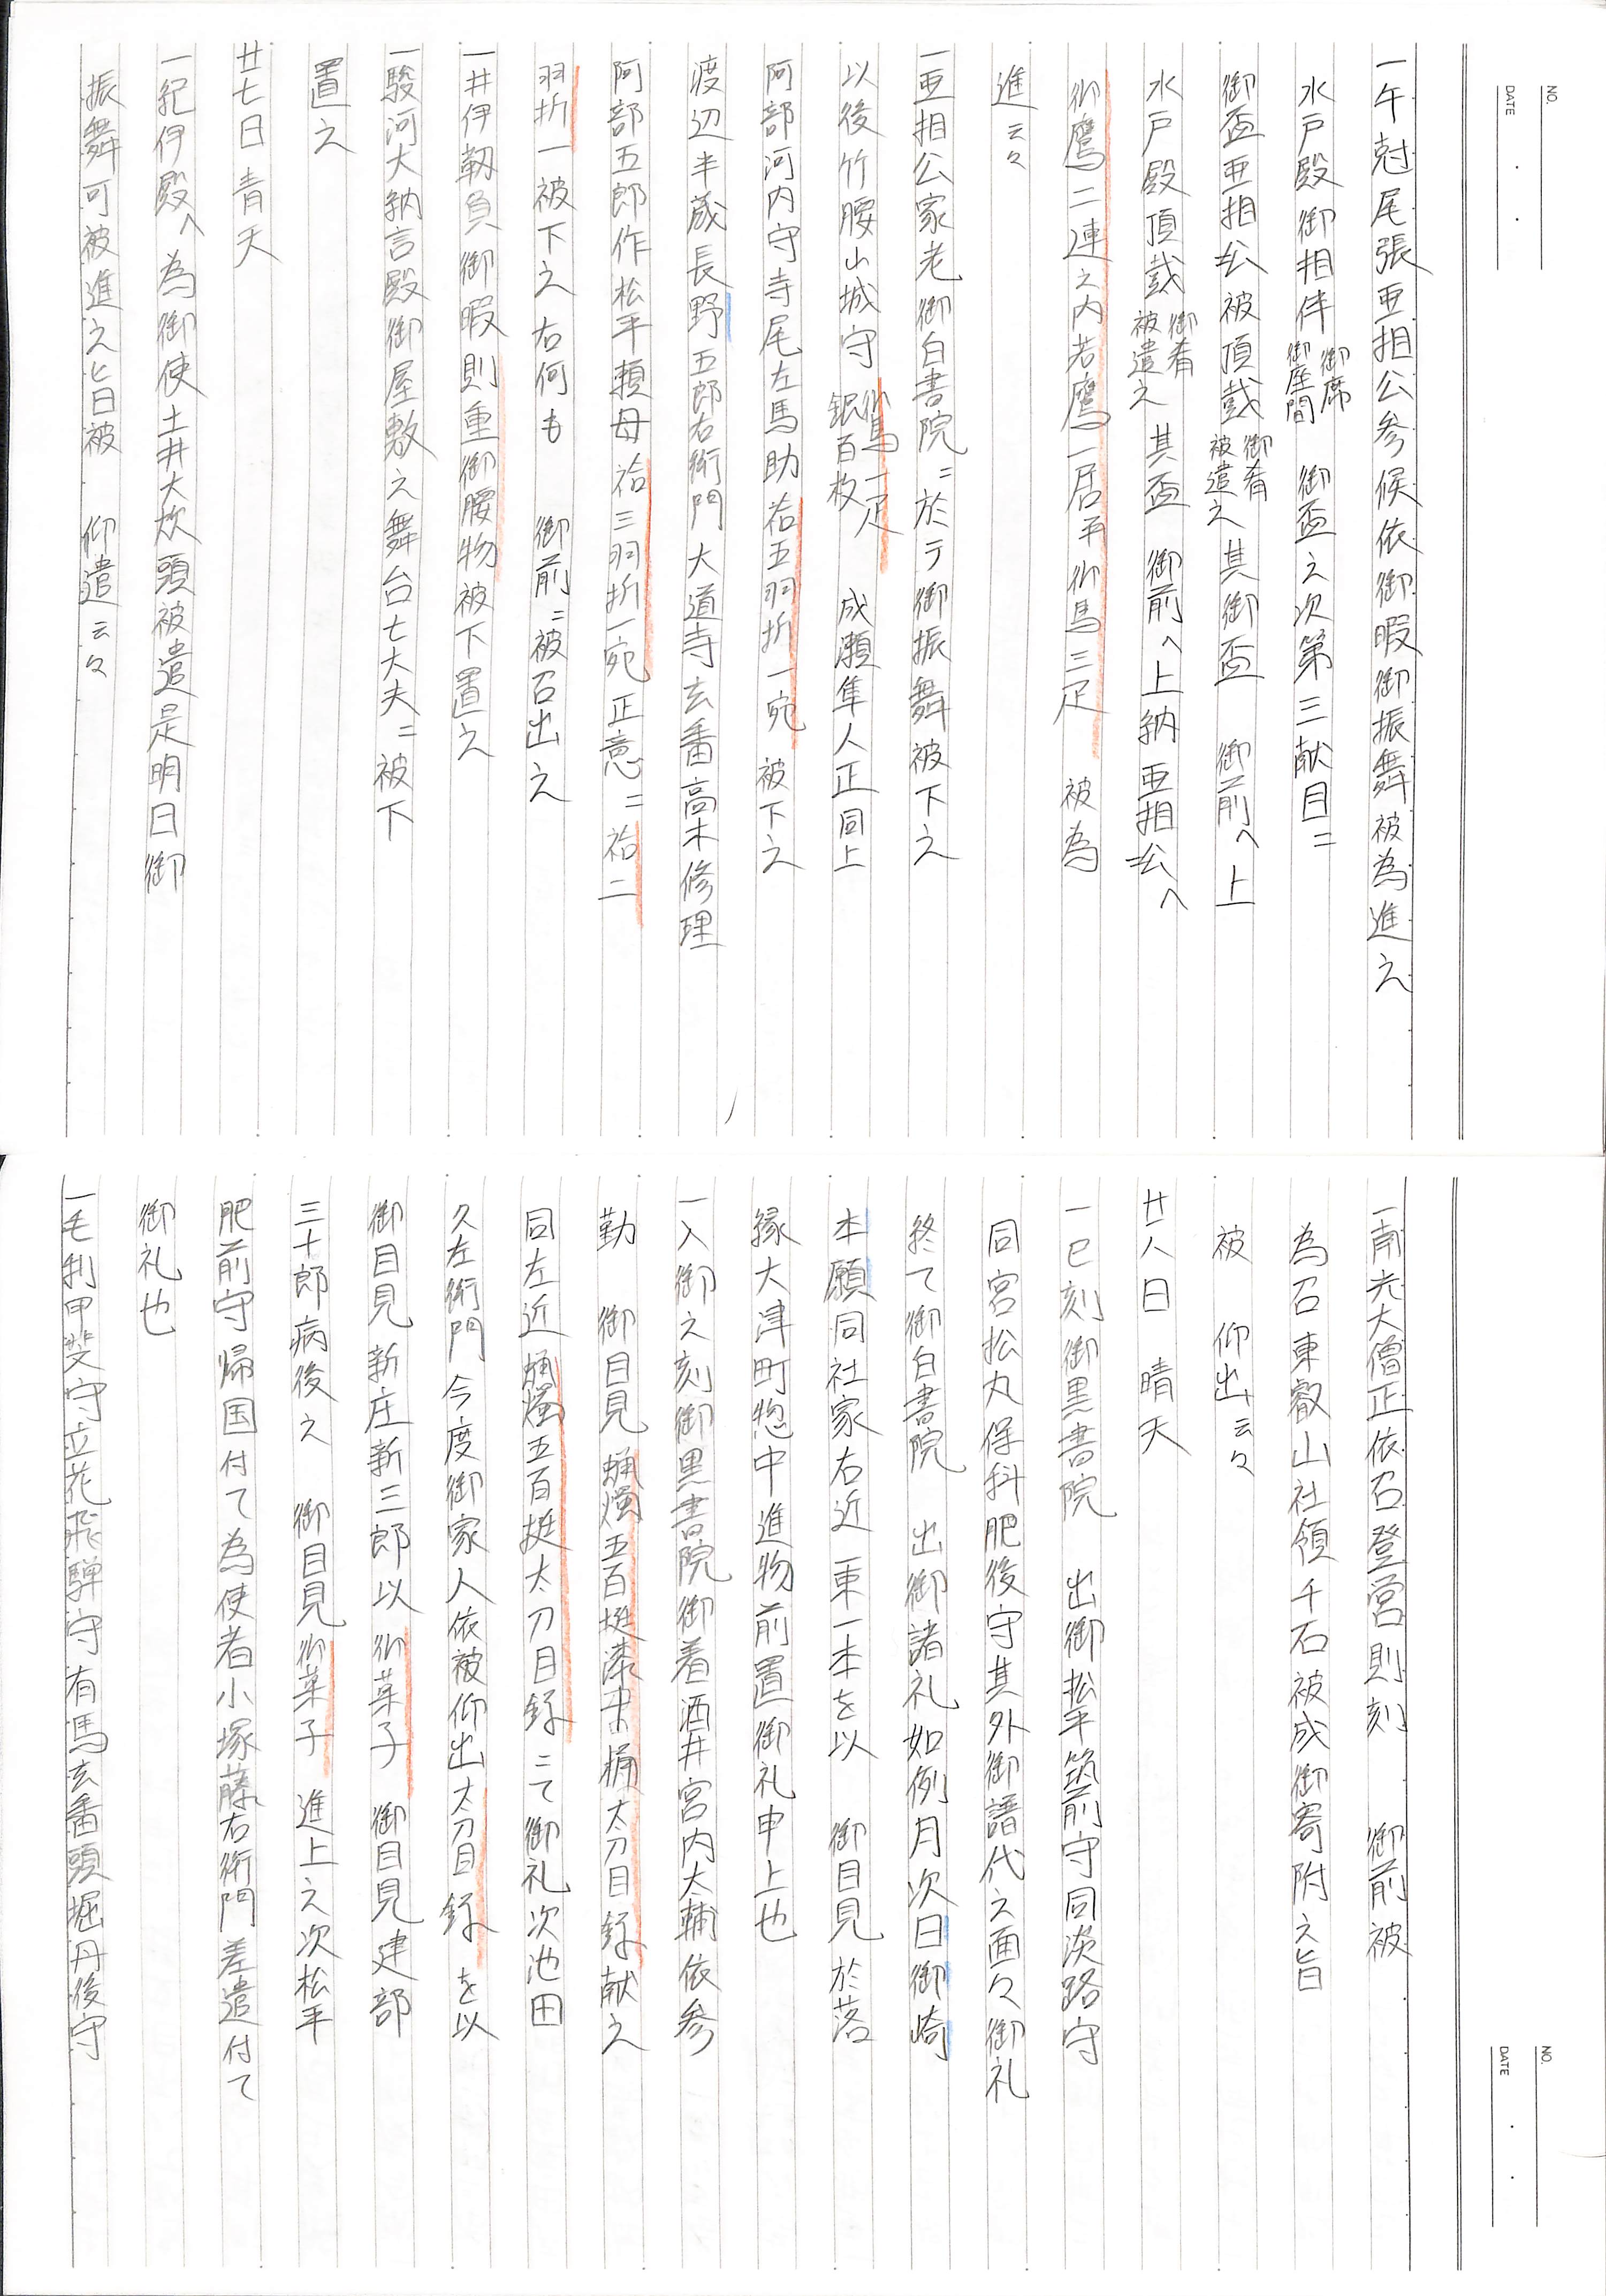 NO.
DATE
一午尅尾張亜相公参候依御暇御振舞被為進之
水戸殿御相伴御席御座間 御盃之次第三献目ニ
御盃亜相公被頂戴御肴被遣之其御盃 御前へ上
水戸殿頂戴御肴被遣之其盃 御前へ上納亜相公へ
御鷹二連之内若鷹一居平御馬三疋 被為
進云々
一亜相公家老御白書院ニ於テ御振舞被下之
以後竹腰山城守御馬一疋銀百枚 成瀬隼人正同上
阿部河内守寺尾左馬助袷五羽折一宛被下之
渡辺半蔵長野五郎右衛門大道寺玄番高木修理
阿部五郎作松平頼母袷三羽折一宛正意ニ袷二
羽折一被下之右何も 御前ニ被召出之
一井伊靱負御暇則重御腰物被下置之
一駿河大納言殿御屋敷之舞台七大夫ニ被下
置之
廿七日青天
一紀伊殿へ為御使土井大炊頭被遣是明日御
振舞可被進之旨被 仰遣云々
NO.
DATE
一南光大僧正依召登営則刻 御前被
為召東叡山社領千石被成御寄附之旨
被 仰出云々
廿八日 晴天
一巳刻御黒書院 出御松平筑前守同淡路守
同宮松丸保科肥後守其外御譜代之面々御礼
終て御白書院 出御諸礼如例月次日御崎
本願同社家右近東一本を以 御目見於落
縁大津町惣中進物前置御礼申上也
一入御之刻御黒書院御着酒井宮内大輔依参
勤 御目見蝋燭五百挺漆一桶太刀目録献之
同左近蝋燭五百挺太刀目録ニて御礼次池田
久左衛門今度御家人依被仰出太刀目録を以
御目見新庄新三郎以御菓子 御目見建部
三十郎病後之 御目見御菓子進上之次松平
肥前守帰国付て為使者小塚藤右衛門差遣付て
御礼也
一毛利甲斐守立花飛騨守有馬玄番頭堀丹後守